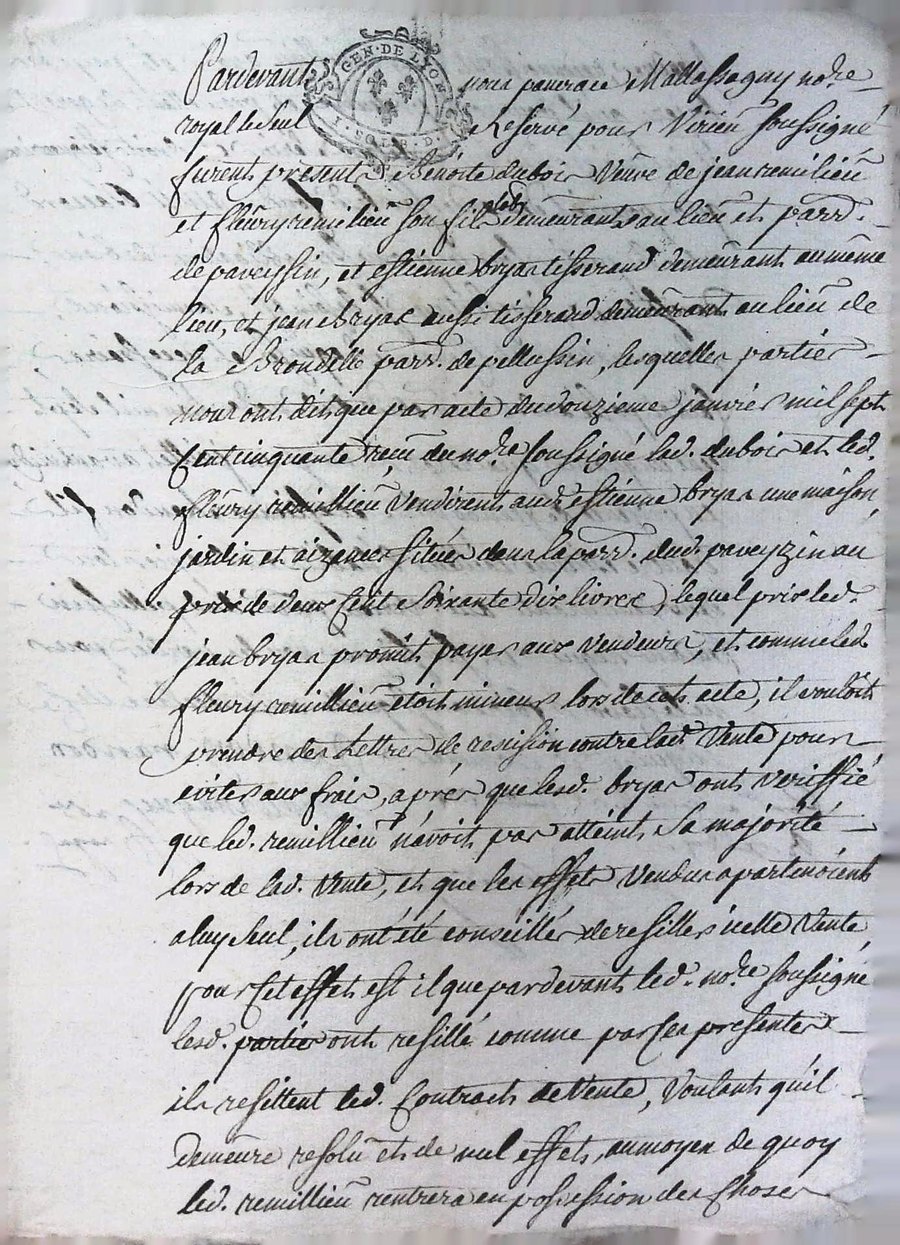 GEN. DE LYON
Pardevant nous pancrace Mallassagny no.re
royal le seul Reservé pour Virieu soussigné
furent present Benoite dubois Veuve de jean remilieu
et fleury remilieu son fils led. demeurants au lieu et parr.
de paveysin, et estienne bryas tisserand demeurant au même
lieu, et jean bryas aussi tisserand demeurant au lieu de
la Brondelle parr. de pellussin, lesquelles parties
nous ont dit que par acte du douzieme janvier mil sept
Cent cinquante receu du no.re soussigné lad. dubois et led.
fleury remillieu Vendirent aud. estienne bryas une maison
jardin et aizances situés dans la parr. dud. paveyzin au
prix de deux Cent Soixante dix livres, lequel prix led.
jean bryas promit payer aux vendeurs, et comme led.
fleury remillieu étoit mineur lors de cet acte, il vouloit
prendre des Lettres de rescision contre lad. Vente pour
eviter aux frais, aprés que lesd. bryas ont veriffié
que led. remillieu n'avoit pas atteint Sa majorité
lors de lad. Vente, et que les effets Vendus apartenoient
a luy Seul, ils ont été conseillés de resillier icelle Vente
pour Cet effet est il que pardevant led. no.re soussigné
lesd. parties ont resillé comme par Ces presentes
ils resillent led. Contract de Vente, Voulants quil
demeure resolu et de nul effet, au moyen de quoy
led. remillieu rentrera en possession des Choses